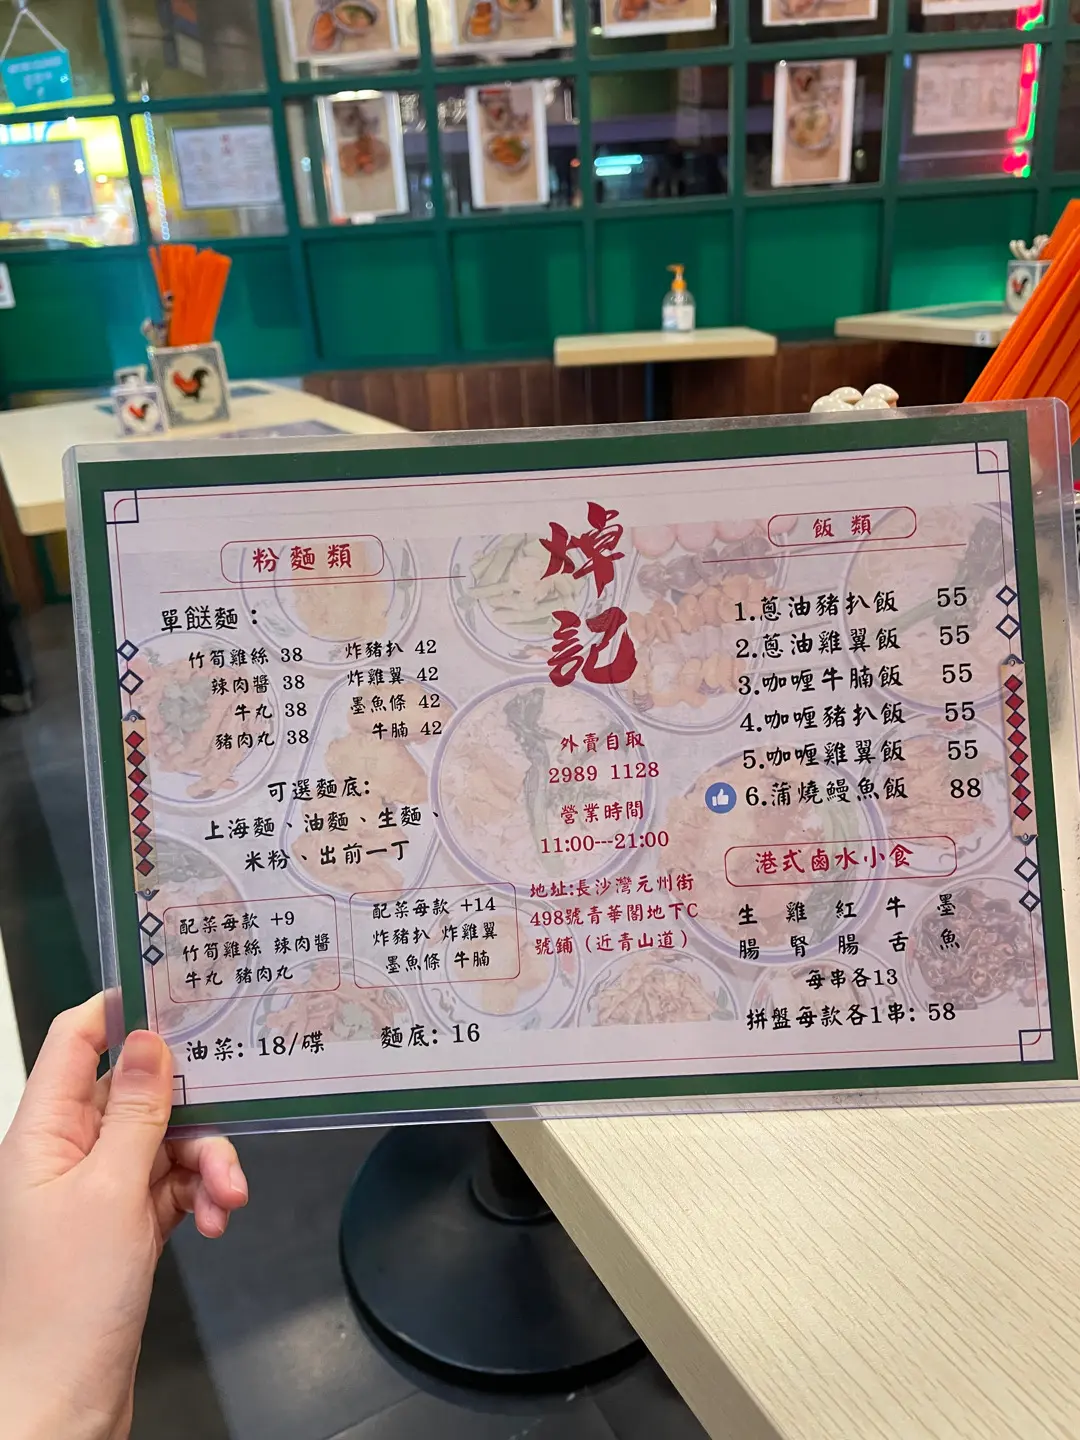 粉麵類
單餸麵：
竹筍雞絲 38
辣肉醬 38
牛丸 38
豬肉丸 38
炸豬扒 42
炸雞翼 42
墨魚條 42
牛腩 42
可選麵底:
上海麵、油麵、生麵、
米粉、出前一丁
配菜每款 +9
竹筍雞絲 辣肉醬
牛丸 豬肉丸
配菜每款 +14
炸豬扒 炸雞翼
墨魚條 牛腩
油菜: 18/碟
麵底: 16
焯記
外賣自取
2989 1128
營業時間
11:00---21:00
地址:長沙灣元州街
498號青華閣地下C
號鋪（近青山道）
飯類
1.蔥油豬扒飯 55
2.蔥油雞翼飯 55
3.咖喱牛腩飯 55
4.咖喱豬扒飯 55
5.咖喱雞翼飯 55
6.蒲燒鰻魚飯 88
港式鹵水小食
生腸 雞腎 紅腸 牛舌 墨魚
每串各13
拼盤每款各1串: 58